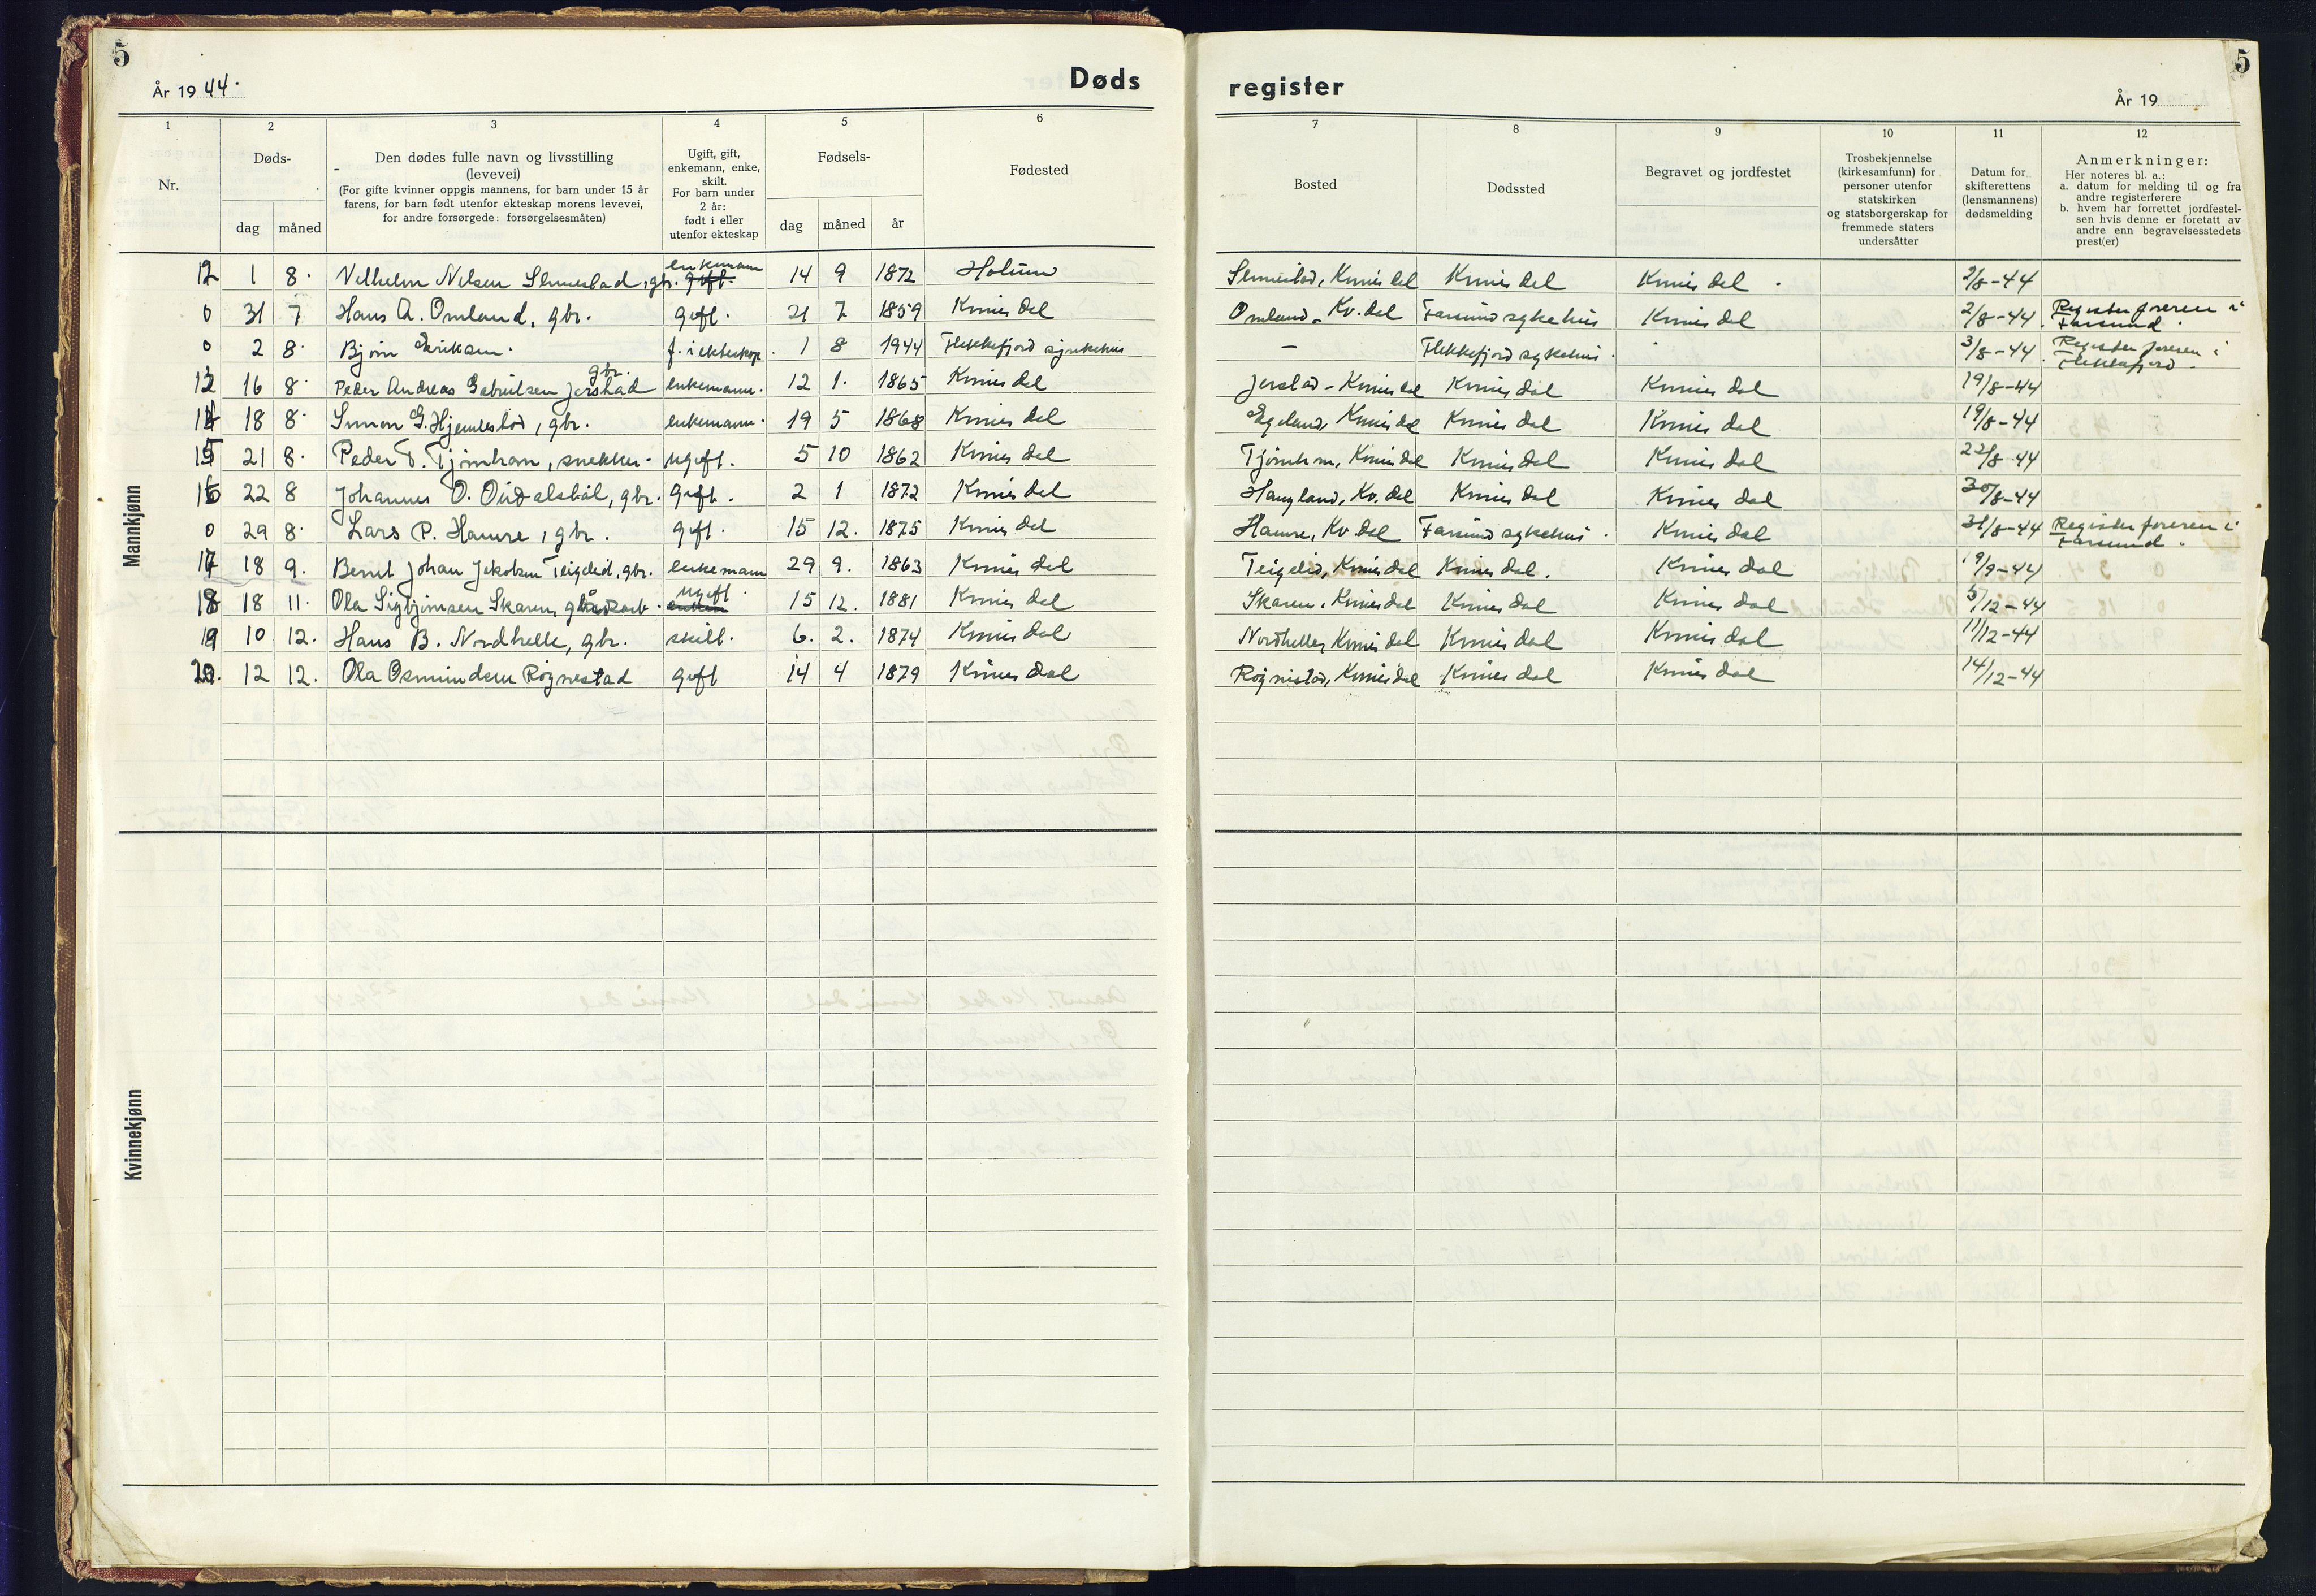 5
5
År 1944.
Døds
register
År 19
1
2
3
4
5
6
7
8
9
10
11
12
Nr.
Døds-
dag
måned
Den dødes fulle navn og livsstilling
(levevei)
(For gifte kvinner oppgis mannens, for barn under 15 år
farens, for barn født utenfor ekteskap morens levevei,
for andre forsørgede: forsørgelsesmåten)
Ugift, gift,
enkemann, enke,
skilt.
For barn under
2 år:
født i eller
utenfor ekteskap
Fødsels-
dag
måned
år
Fødested
Bosted
Dødssted
Begravet og jordfestet
Trosbekjennelse
(kirkesamfunn) for
personer utenfor
statskirken
og statsborgerskap for
fremmede staters
undersåtter
Datum for
skifterettens
(lensmannens)
dødsmelding
Anmerkninger:
Her noteres bl. a.:
a. datum for melding til og fra
andre registerførere
b. hvem har forrettet jordfestel-
sen hvis denne er foretatt av
andre enn begravelsesstedets
prest(er)
Mannkjønn
12 1 8. Vilhelm Nilsen , gbr. enkemann gift. 14 9 1872 Holum Kvinesdal Kvinesdal Kvinesdal 2/8-44
0 31 7 Hans A. Omland, gbr. gift. 21 7 1859 Kvinesdal Omland, Kv.dal Farsund sykehus Kvinesdal 2/8-44 Registerføreren i Farsund.
0 2 8. Bjørn Eriksen. f. i ekteskap. 1 8 1944 Flekkefjord sjukehus — Flekkefjord sykehus. 3/8-44 Registerføreren i Flekkefjord.
13 16 8. Peder Andreas Gabrielsen Jerstad gbr. enkemann. 12 1. 1865 Kvinesdal Jerstad - Kvinesdal Kvinesdal Kvinesdal 19/8-44
14 18 8. Simon G. Hjemlestad, gbr. enkemann. 19 5 1868 Kvinesdal Egeland, Kvinesdal Kvinesdal Kvinesdal 19/8-44
15 21 8. Peder T. Tjomham, snekker. ugift. 5 10 1862 Kvinesdal Tjomham, Kvinesdal Kvinesdal Kvinesdal 22/8-44
16 22 8 Johannes O. , gbr. gift. 2 1 1872 Kvinesdal Haugland, Kv.dal Kvinesdal Kvinesdal 30/8-44
0 29 8. Lars P. Hamre, gbr. gift. 15 12. 1875 Kvinesdal Hamre, Kv dal Farsund sykehus. Kvinesdal 31/8-44 Registerføreren i Farsund.
17 18 9. Bernt Johan Jakobsen Teigelid, gbr. enkemann 29 9. 1863 Kvinesdal Teigelid, Kvinesdal Kvinesdal. Kvinesdal 19/9-44
18 18 11. Ola Sigbjørnsen Skaren, gårdsarb. ugift. 15 12. 1881 Kvinesdal Skaren, Kvinesdal Kvinesdal Kvinesdal 5/12-44
19 10 12. Hans B. Nordhelle, gbr. skilt. 6. 2. 1874 Kvinesdal Nordhelle, Kvinesdal Kvinesdal Kvinesdal 11/12-44
20. 12 12. Ola Osmundsen Røgnestad gift 14 4 1879 Kvinesdal Røgnestad, Kvinesdal Kvinesdal Kvinesdal 14/12-44
Kvinnekjønn